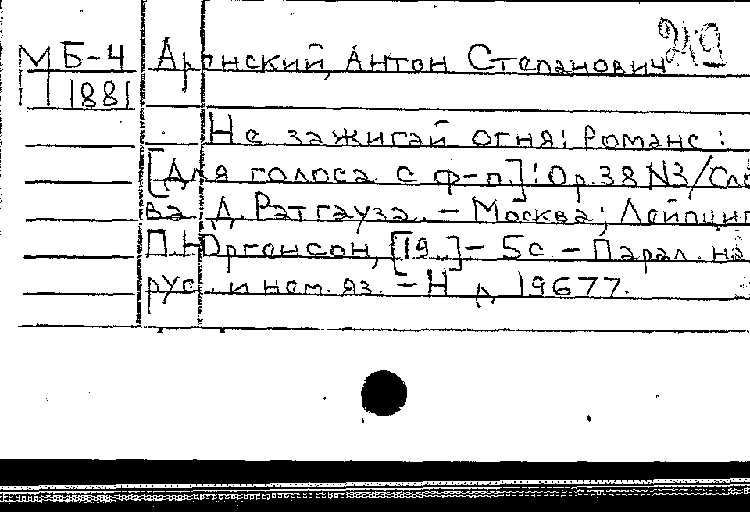 МБ-4 Аренский, Антон Степанович 219
1881
Не зажигай огня: Романс:
[Для голоса с ф-п.]: Ор.38 N3/Сло
ва Д. Ратгауза. - Москва; Лейпциг
П. Юргенсон, [19..] - 5с - Парал. на
рус. и нем. яз. - Н д 19677.